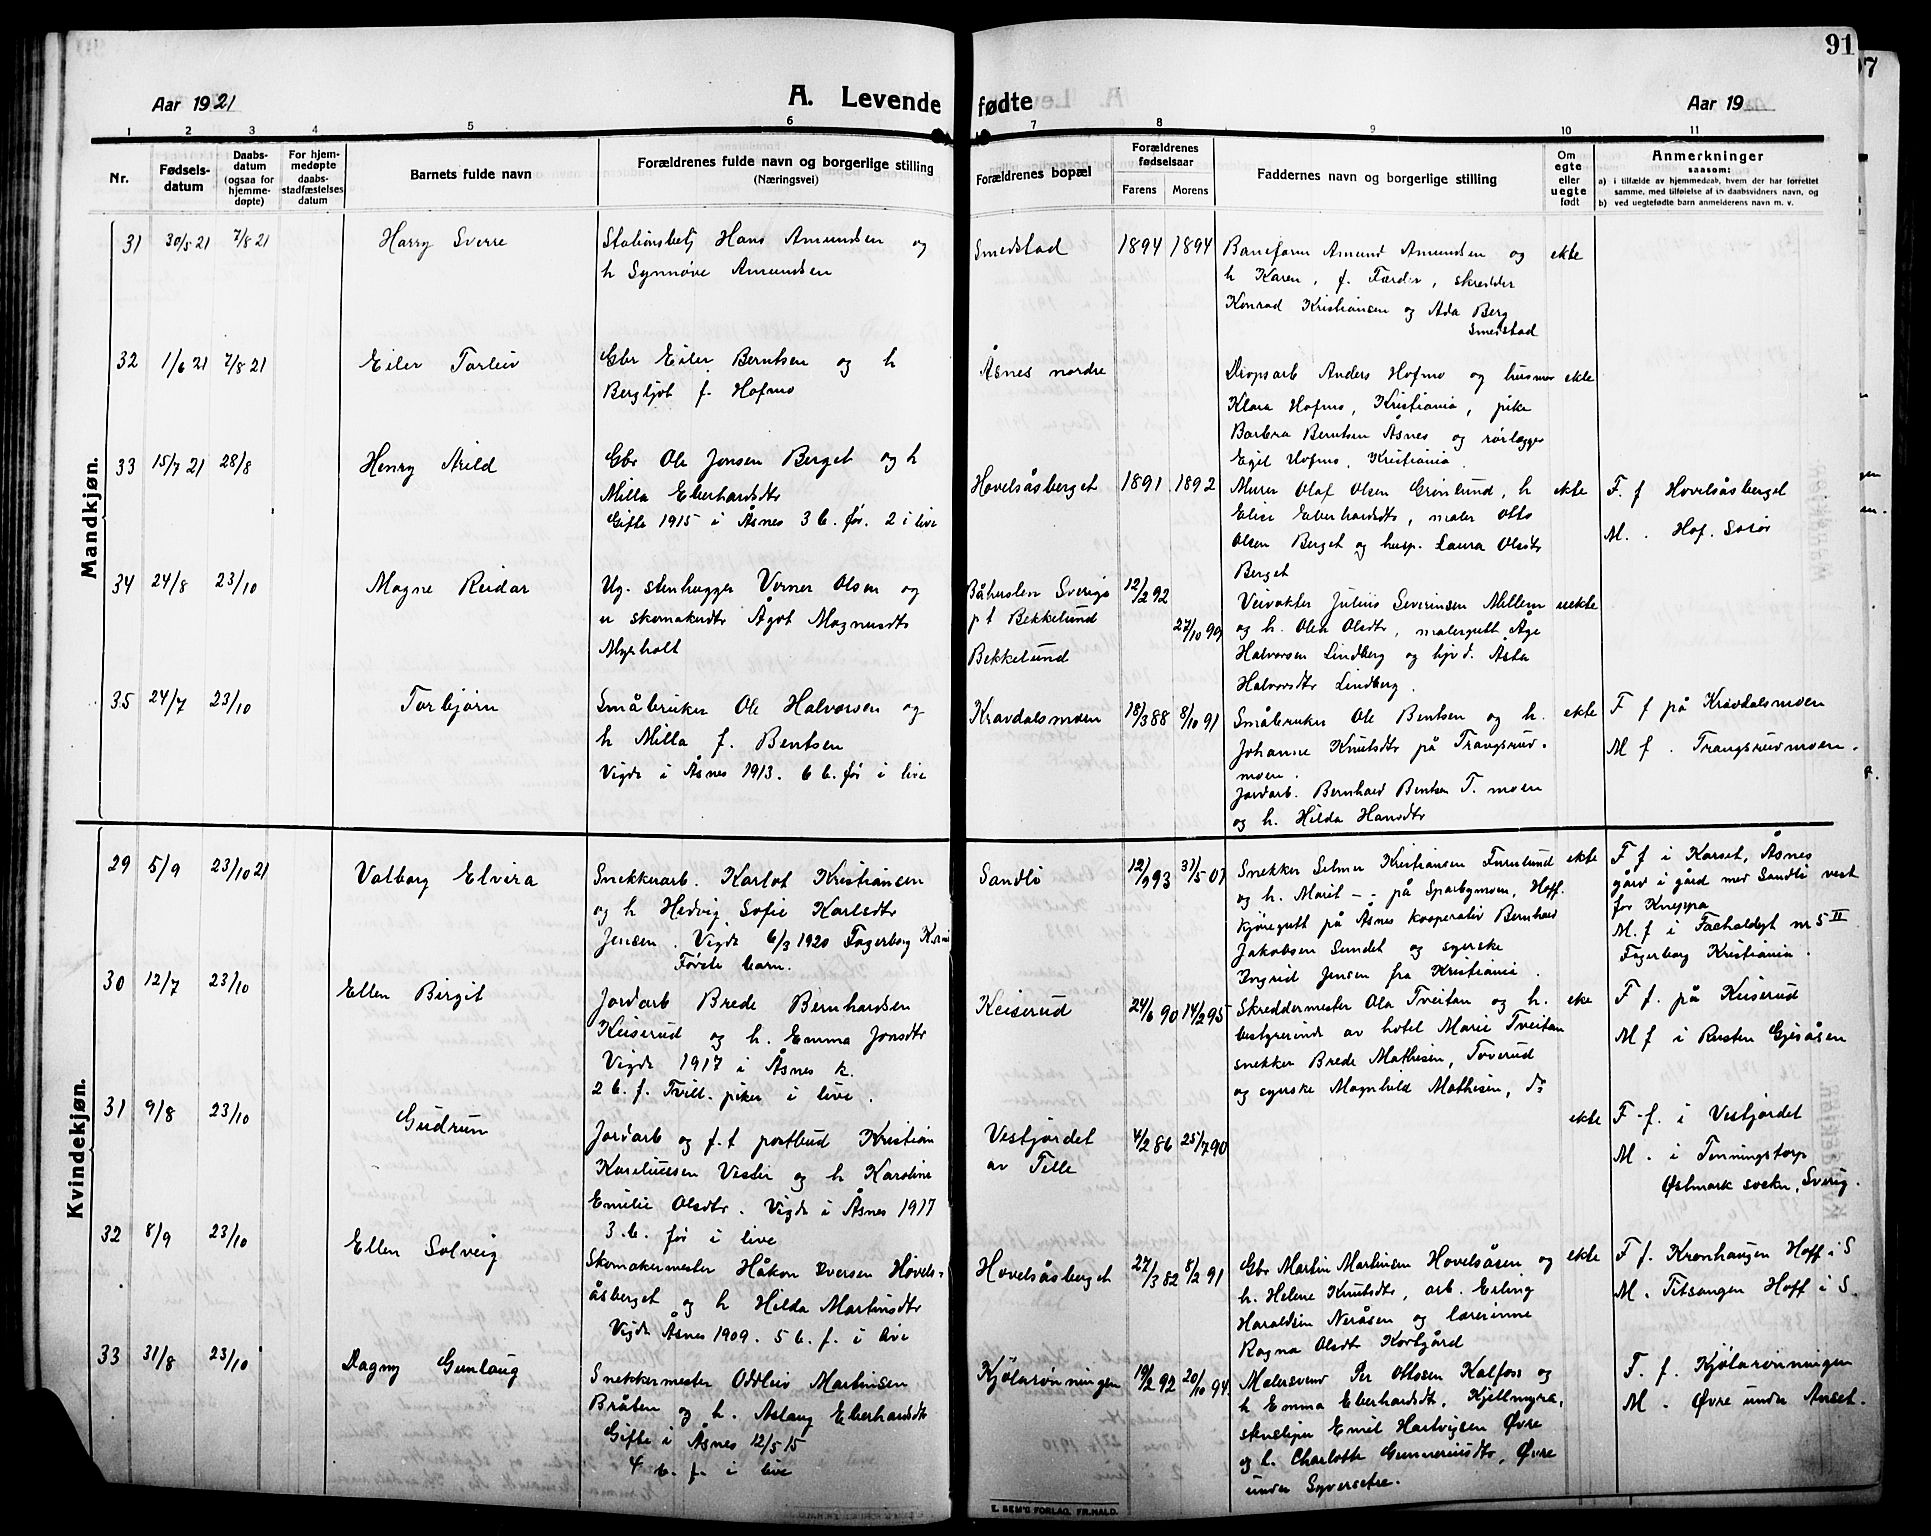 91
7
Aar 1921
A. Levende
fødte
Aar 19
1 2 3 4 5 6 7 8 9 10 11
Nr.
Fødsels-
datum
Daabs-
datum
(ogsaa for
hjemme-
døpte)
For hjem-
medøpte
daabs-
stadfæstelses
datum
Barnets fulde navn
Forældrenes fulde navn og borgerlige stilling
(Næringsvei)
Forældrenes bopæl
Forældrenes
fødselsaar
Farens Morens
Faddernes navn og borgerlige stilling
Om
egte
eller
uegte
født
Anmerkninger
saasom:
a) i tilfælde av hjemmedaab, hvem der har forrettet
samme, med tilføielse af to daabsvidners navn, og
b) ved uegtefødte barn anmelderens navn m. v.
Mandkjøn.
31 30/5 21 7/8 21 Harry Sverre
Stationsbetj Hans Amundsen og
h Synnøve Amundsen
Smedstad 1894 1894
Baneform Amund Amundsen og
h Karen, f. Færder, skredder
Konrad Kristiansen og Ada Berg
Smedstad
ekte
32 1/6 21 7/8 21 Eiler Torleiv
Gbr Eiler Berntsen og h
Bergljot f. Hofmo
Åsnes nordre
Dropsarb Anders Hofmo og husmor
Klara Hofmo, Kristiania, pike
Barbra Berntsen Åsnes og rørlægger
Egil Hofmo, Kristiania.
ekte
33 15/7 21 28/8 Henry Arild
Gbr Ole Jensen Berget og h
Milla Eberhardsdtr
Gifte 1915 i Åsnes 3 b. før. 2 i live
Hovelsåsberget 1891 1892
Murer Olaf Olsen Grønlund, h
Elise Eberhardsdtr, maler Otto
Olsen Berget og husp. Laura Olsdtr
Berget
ekte
F. f Hovelsåsberget
M. . Hof. Solør
34 24/8 23/10 Magne Reidar
Ug. stenhugger Verner Olsen og
u skomakerdtr Ågot Magnusdtr
Myrholt
Båhuslen Sverige
p t Bekkelund
Bekkelund
12/2 92
27/10 99
Veivokter Julius Severinsen Mellem
og h. Olea Olsdtr, malergutt Åge
Halvorsen Lindberg og hjv d. Åsta
Halvorsdtr Lindberg.
uekte
35 24/7 23/10 Torbjørn
Småbruker Ole Halvorsen og
h Milla f. Bentsen
Vigde i Åsnes 1913. 6 b. før i live
Kravdalsmoen 18/3 88 8/10 91
Småbruker Ole Bentsen og h.
Johanne Knutsdtr på Trangsrud-
moen.
Jordarb. Bernhard Bentsen T. moen
og h. Hilda Hansdtr
ekte
F f på Kravdalsmoen
M f . Trangsrudmoen.
Kvindekjøn.
29 5/9 23/10 21 Valborg Elvira
Snekkerarb. Karlot Kristiansen
og h Hedvig Sofie Karlsdtr
Jensen. Vigde 6/3 1920 Fagerborg Kr.nia
Første barn.
Sandlø 12/9 93 31/5 01
Snekker Selmer Kristiansen Furulund
og h. Marit - - på Sparbymoen, Hoff.
kjøregutt på Åsnes kooperativ Bernhard
Jakobsen Sundet og syerske
Ingrid Jensen fra Kristiania.
ekte
F f i Karset, Åsnes
gård i gård med Sandlø vest
for Kneppa
M. f i Facholdtgt nr 5 II
Fagerborg Kristiania.
30 12/7 23/10 Ellen Birgit
Jordarb Brede Bernhardsen
Keiserud og h. Emma Jonsdtr
Vigde 1917 i Åsnes k.
2 b. f. Tvill. piker i live.
Keiserud 24/6 90 14/2 95
Skreddermester Ola Tveitan og h.
bestyrerinde av hotel Marie Tveitan
snekker Brede Mathisen, Toverud
og syerske Magnhild Mathisen, ds
eke
F f. på Keiserud
M f i Rusten Gjesåsen
31 9/8 23/10 Gudrun
Jordarb og f.t postbud Kristian
Kareliussen Vestli og h Karoline
Emilie Olsdtr. Vigde i Åsnes 1917
3.b. før i live
Vestjordet
av Telle
4/2 86 25/7 90
ekte
F. f. i Vestjordet
M. . i Tenningstorp
Østmark socken, Sverig.
32 8/9 23/10 Ellen Solveig
Skomakermester Håkon Iversen Hovels-
åsberget og h Hilda Martinsdtr
Vigde Åsnes 1909. 5 b. f. i live
Hovelsåsberget 27/3 82 8/2 91
Gbr Martin Martinsen Hovelsåsen og
h. Helene Knutsdtr, arb. Erling
Haraldsen Neråsen og lærerinne
Ragna Olsdtr Kortgård
ekte
F f. Kronhaugen Hoff i S
M. . Titsangen Hoff i S.
33 31/8 23/10 Dagny Gunlaug
Snekkermester Oddleiv Martinsen
Bråten og h. Aslaug Eberhardsdtr
Gifte i Åsnes 12/5 15
4 b. f. i live
Kjølarønningen 19/2 92 20/10 94.
Malersvend Per Ottosen Kalfoss og
h Emma Eberhardsdtr, Kjellmyra,
Emil Hartvigsen Øvre
og h. Charlotte Gunneriusdtr, Øvre
under Syversetre.
F. f. Kjølarønningen
M. . Øvre under Arset.
E. SEM'S FORLAG, FR.HALD.